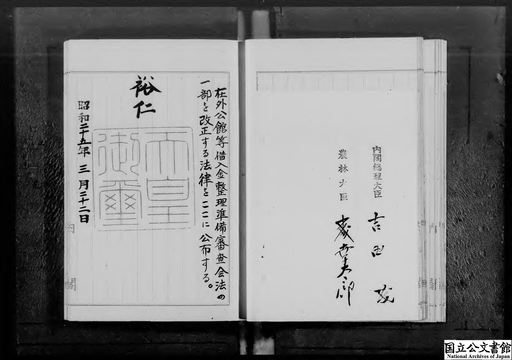 在外公館等借入金整理準備審査会法の
一部を改正する法律をここに公布する。
裕仁
天皇
御璽
昭和二十五年三月二十二日
内閣総理大臣 吉田茂
農林大臣
国立公文書館
National Archives of Japan